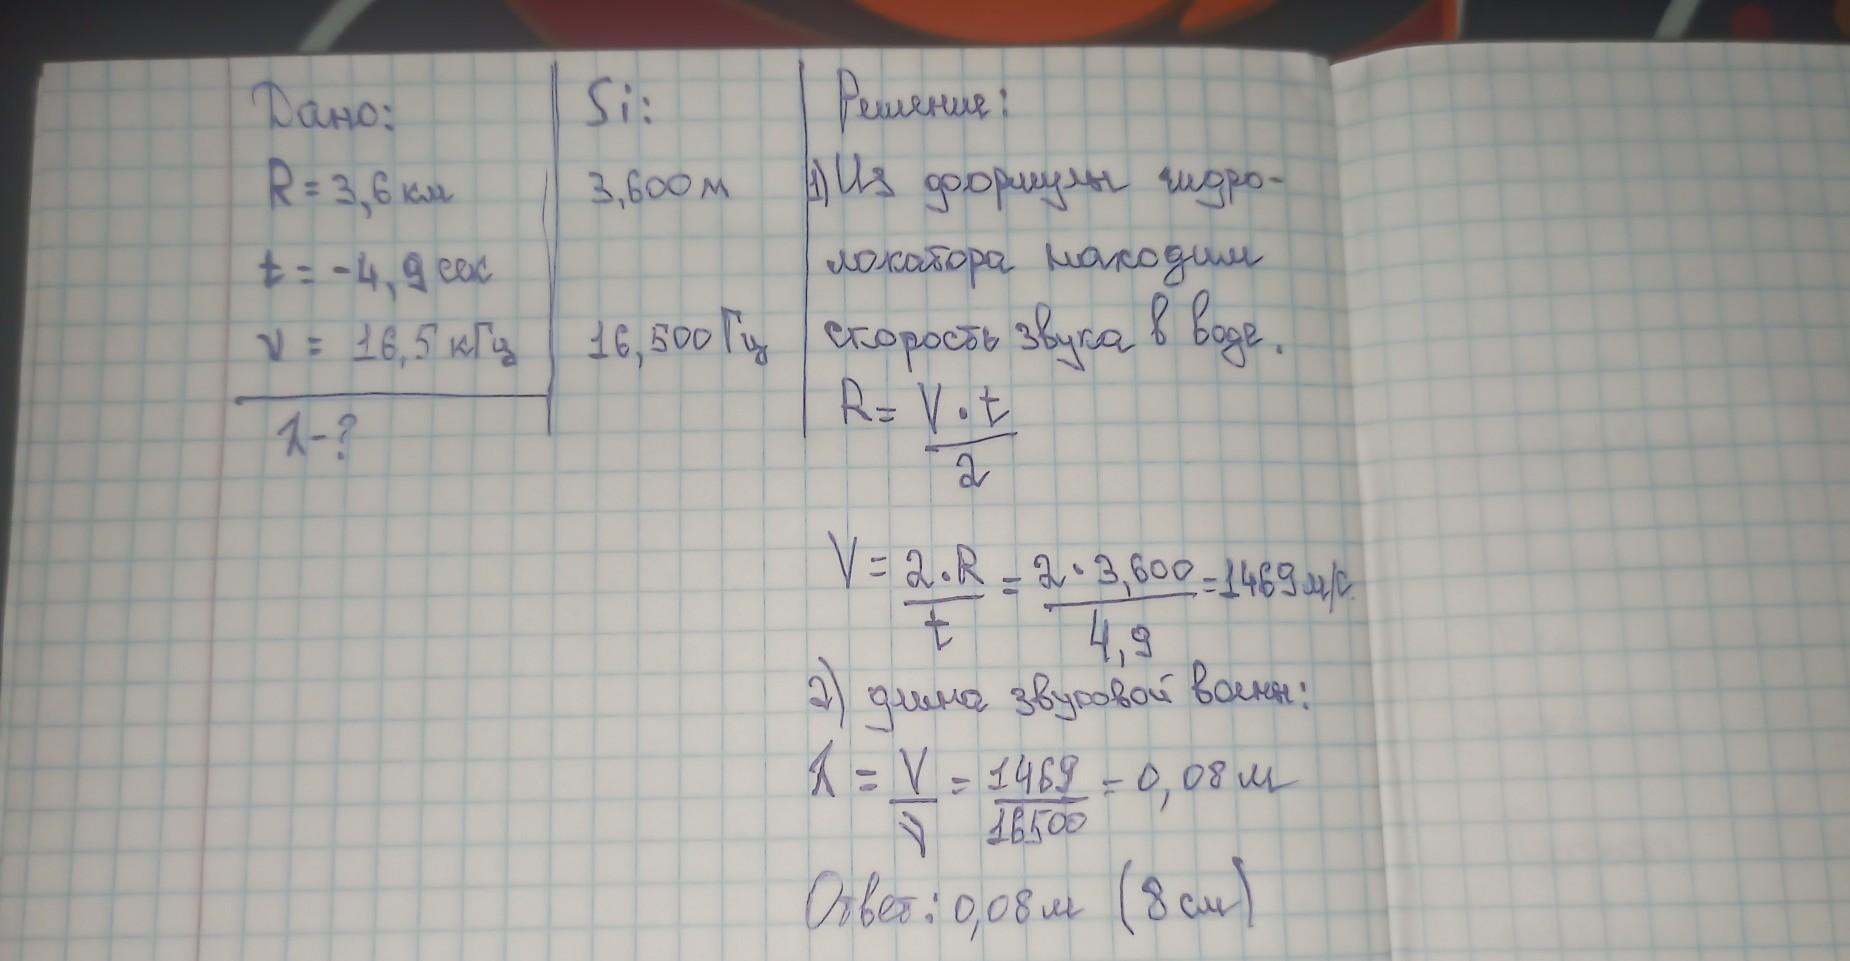 Дано:
R = 3,6 км
t = -4,9 сек
ν = 16,5 кГц
λ - ?
Si:
3,600 м
16,500 Гц
Решение:
1) Из формулы гидро-
локатора находим
скорость звука в воде.
R = V · t / 2
V = 2 · R / t = 2 · 3,600 / 4,9 = 1469 м/с
2) длина звуковой волны:
λ = V / ν = 1469 / 16500 = 0,08 м
Ответ: 0,08 м (8 см)